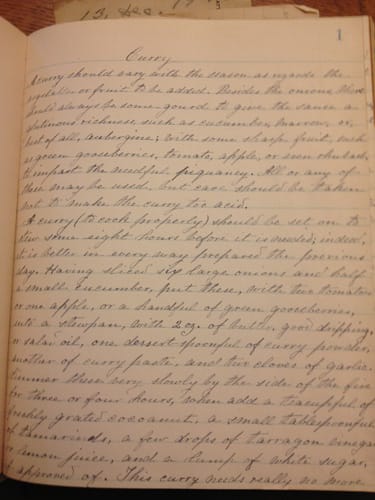 13. Dec.
1
Curry
A curry should vary with the season as regards the
vegetables or fruit to be added. Besides the onions there
should always be some gourd to give the sauce a
glutinous richness, such as cucumber, marrow, or,
best of all, aubergine; with some sharp fruit, such
as green gooseberries, tomato, apple, or even rhubarb,
to impart the needful piquancy. All or any of
these may be used, but care should be taken
not to make the curry too acid.
A curry (to cook properly) should be set on to
stew some eight hours before it is needed; indeed,
it is better in every way prepared the previous
day. Having sliced six large onions and half
a small cucumber, put these, with two tomatoes
or one apple, or a handful of green gooseberries,
into a stewpan, with 2 oz. of butter, good dripping,
or salad oil, one dessert-spoonful of curry powder,
another of curry paste, and two cloves of garlic.
Simmer these very slowly by the side of the fire
for three or four hours, when add a teacupful of
freshly grated cocoanut, a small tablespoonful
of tamarinds, a few drops of tarragon vinegar
or lemon juice, and a lump of white sugar,
if approved of. This curry needs really no more